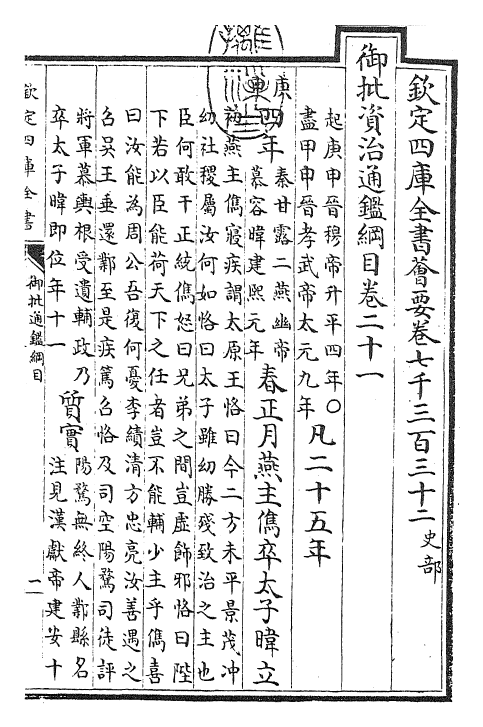 欽定四庫全書薈要卷七千三百三十二 史部
御批資治通鑑綱目卷二十一
起庚申晉穆帝升平四年〇
盡甲申晉孝武帝太元九年
凡二十五年
庚申
四年
秦甘露二燕幽帝
慕容暐建熙元年
春正月燕主儁卒太子暐立
初燕主儁寢疾謂太原王恪曰今二方未平景茂冲
幼社稷屬汝何如恪曰太子雖幼勝殘致治之主也
臣何敢干正統儁怒曰兄弟之間豈虛飾邪恪曰陛
下若以臣能荷天下之任者豈不能輔少主乎儁喜
曰汝能為周公吾復何憂李績清方忠亮汝善遇之
召吳王垂還鄴至是疾篤召恪及司空陽騖司徒評
將軍慕輿根受遺輔政乃
卒太子暐即位年十一
質實
陽騖無終人鄴縣名
注見漢獻帝建安十
欽定四庫全書
御批通鑑綱目